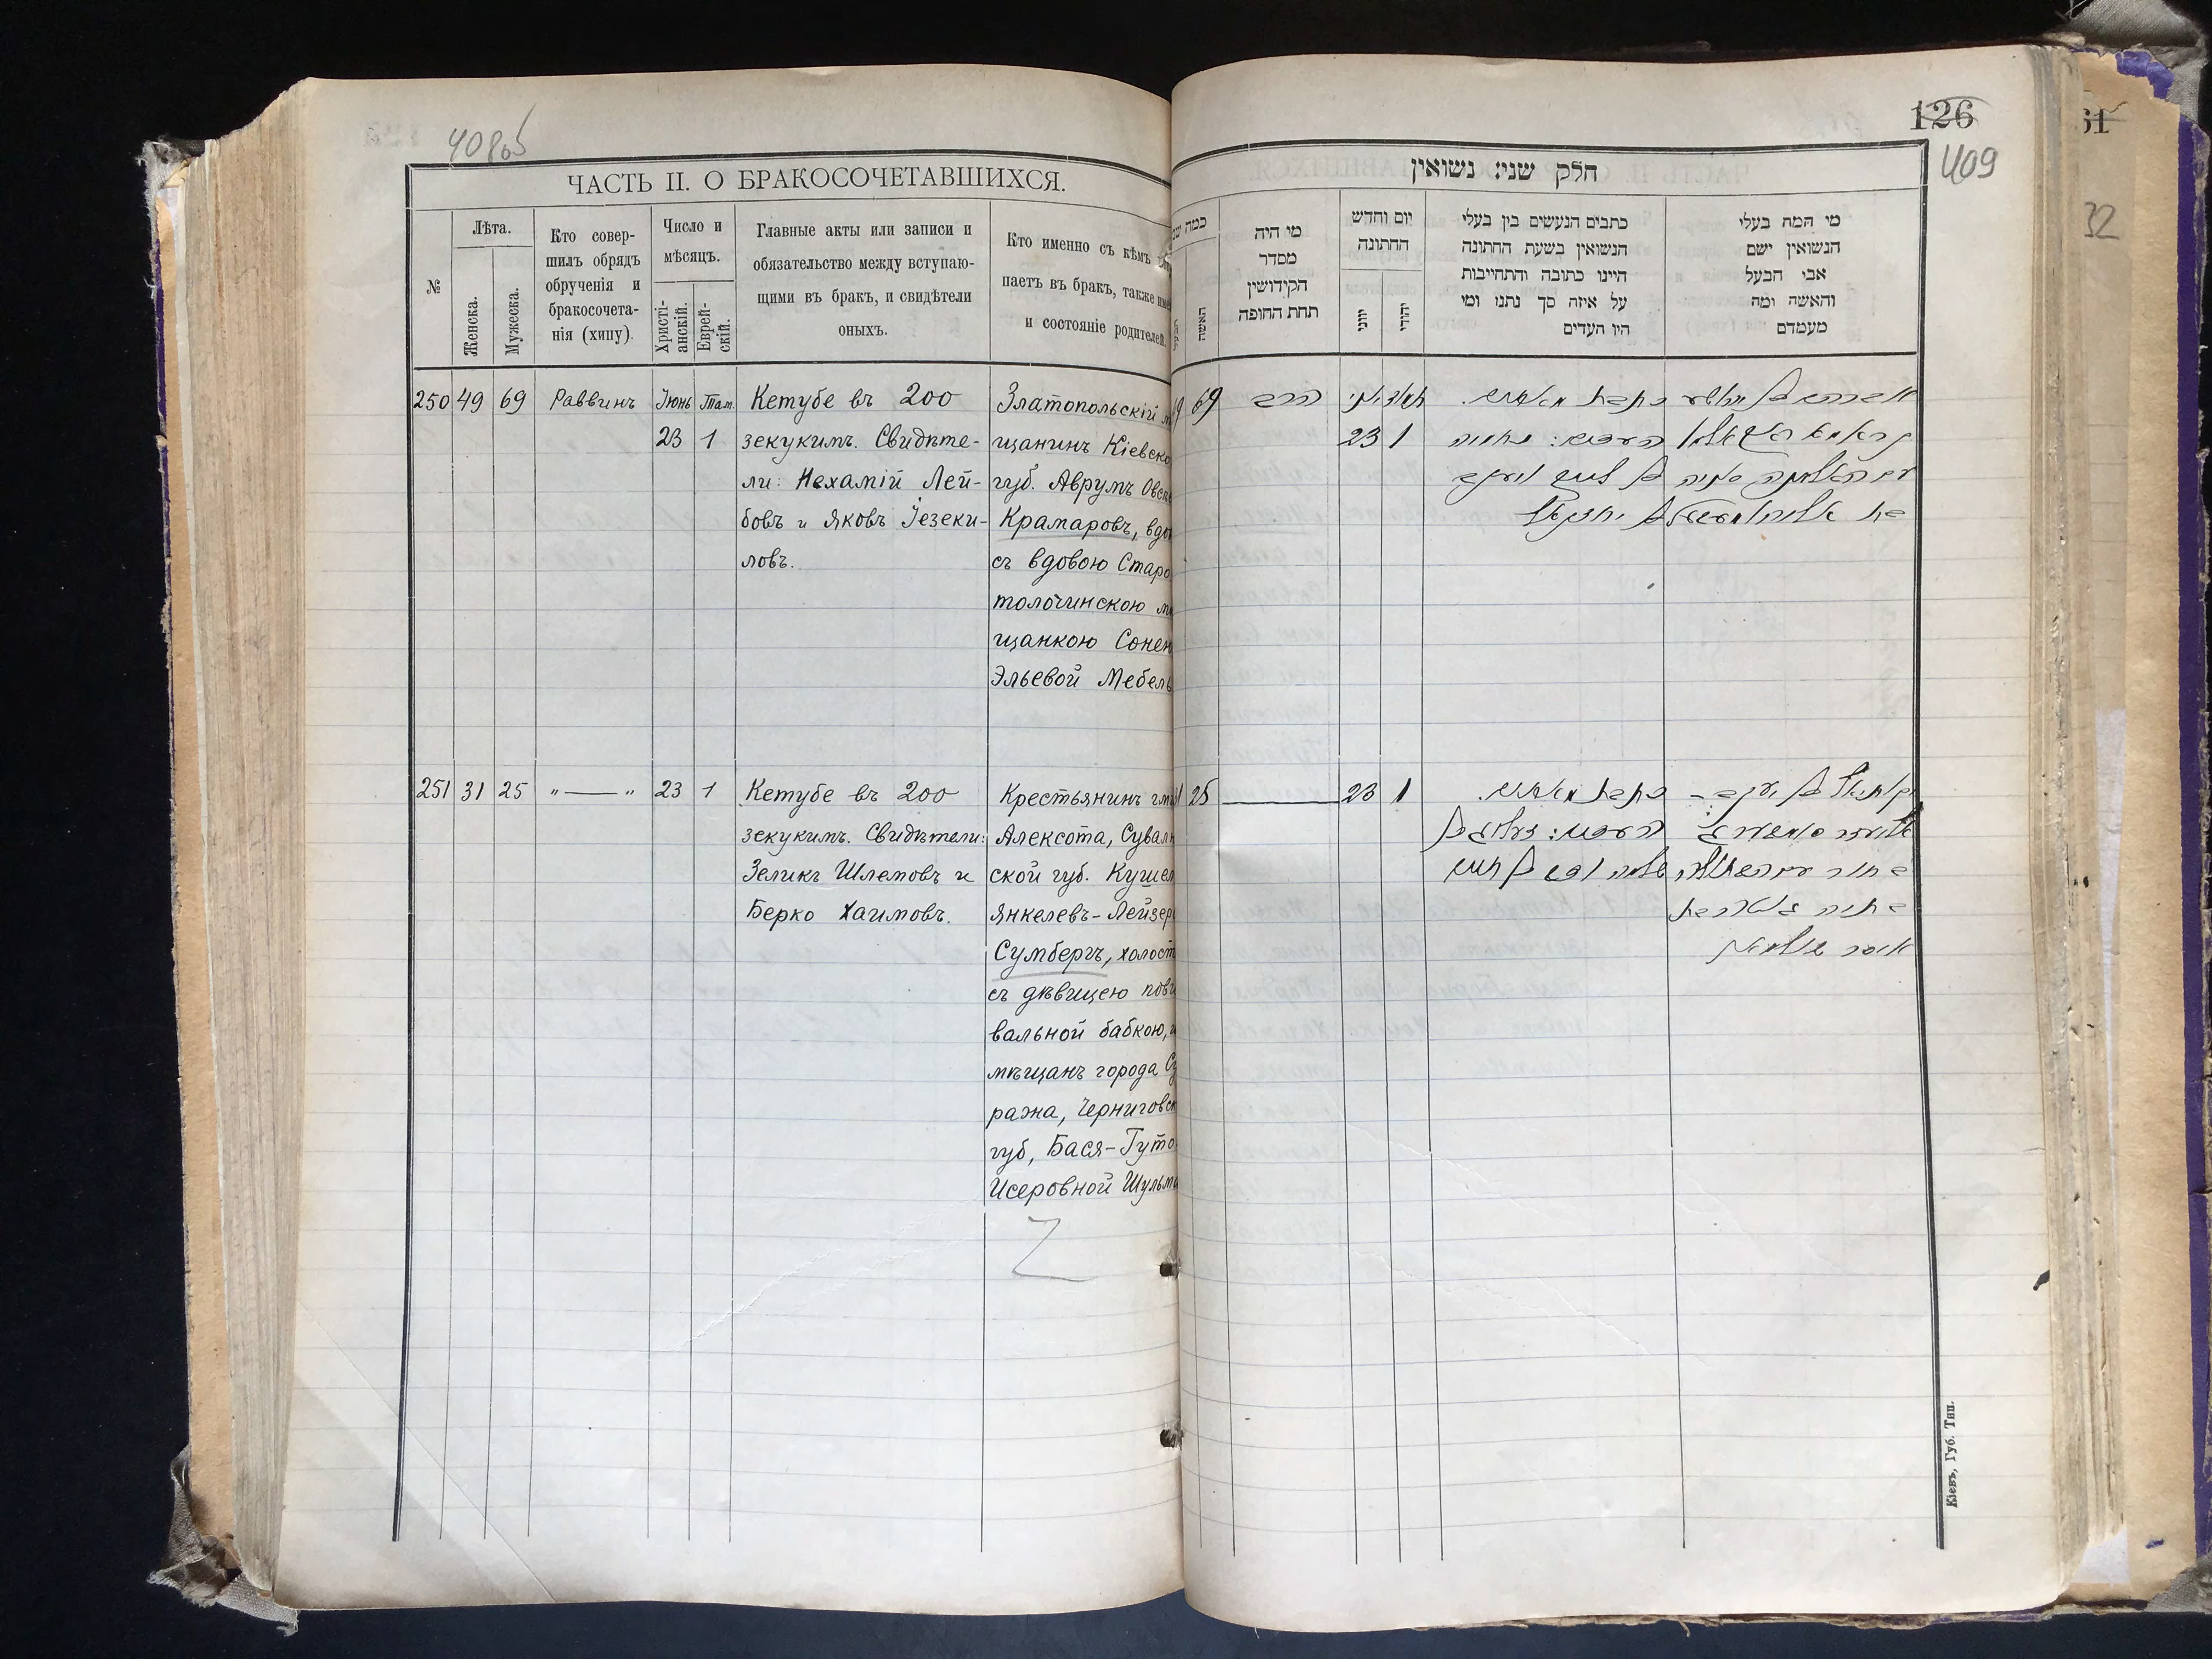 408об
ЧАСТЬ II. О БРАКОСОЧЕТАВШИХСЯ.
№
Лѣта.
Женска.
Мужеска.
Кто совер-
шилъ обрядъ
обрученія и
бракосочета-
нія (хипу).
Число и
мѣсяцъ.
Христі-
анскій.
Еврей-
скій.
Главные акты или записи и
обязательство между вступаю-
щими въ бракъ, и свидѣтели
оныхъ.
Кто именно съ кѣмъ
паетъ въ бракъ, также
и состояніе родителей.
250 49 69 Раввинъ Іюнь Там.
23 1
Кетубе въ 200
зекукимъ. Свидѣте-
ли: Нехамій Лей-
бовъ и Яковъ Іезеки-
ловъ.
Златопольскій
щанинъ Кіевско
губ. Аврумъ Овсі
Крамаровъ, вдо
съ вдовою Старо
толочинскою
щанкою Сонен
Эльевой Мебель
251 31 25 „ — „ 23 1
Кетубе въ 200
зекукимъ. Свидѣтели:
Зеликъ Шлемовъ и
Берко Хаимовъ.
Крестьянинъ
Алексота, Сувалк
ской губ. Кушел
Янкелевъ-Лейзер
Сумбергъ, холост
съ дѣвицею пови
вальной бабкою,
мѣщанъ города Су
ража, Черниговск
губ, Бася-Гуто
Исеровной Шульма
126
409
חלק שני: נשואין
כמה
האשה
מי היה
מסדר
הקידושין
תחת החופה
יום וחדש
החתונה
יוני
יהודי
כתבים הנעשים בין בעלי
הנשואין בשעת החתונה
היינו כתובה והתחייבות
על איזה סך נתנו ומי
היו העדים
מי המה בעלי
הנשואין ושם
אבי הבעל
והאשה ומה
מעמדם
69 הרב
23 1
כתבת מאתים.
העדים: נחמיה
בן לייב ויעקב
בן יחזקאל
25 23 1
כתבת מאתים.
העדים: זעליג בן
שלמה ובער בן חיים
Кіевъ, Губ. Тип.
31
32